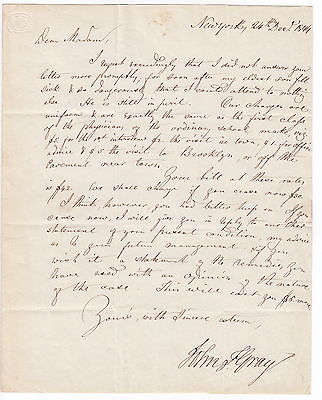 New York, 24th Decr 1844
Dear Madam,
I regret exceedingly that I did not answer your
letter more promptly, for soon after my eldest son fell
sick & so dangerously that I could attend to nothing
else. He is still in peril. Our charges are
uniform & are exactly the same as the first class
of the physicians of the ordinary school make, viz
$5 for the 1st interview $2 the visit in town, & $1 for office
advice & $5 the visit to Brooklyn or off the
pavement near town.
Your bill at these rates
is $42. We shall charge if you cease now $30.
I think, however, you had better keep on. If you
cease now, I will give you in reply to another
statement of your present condition, my advice
as to your future management. If you
wish it a statement of the remedies you
have used with an opinion of the nature
of the case. This will cost you $5 more.
Yours, with sincere esteem,
John F. Gray